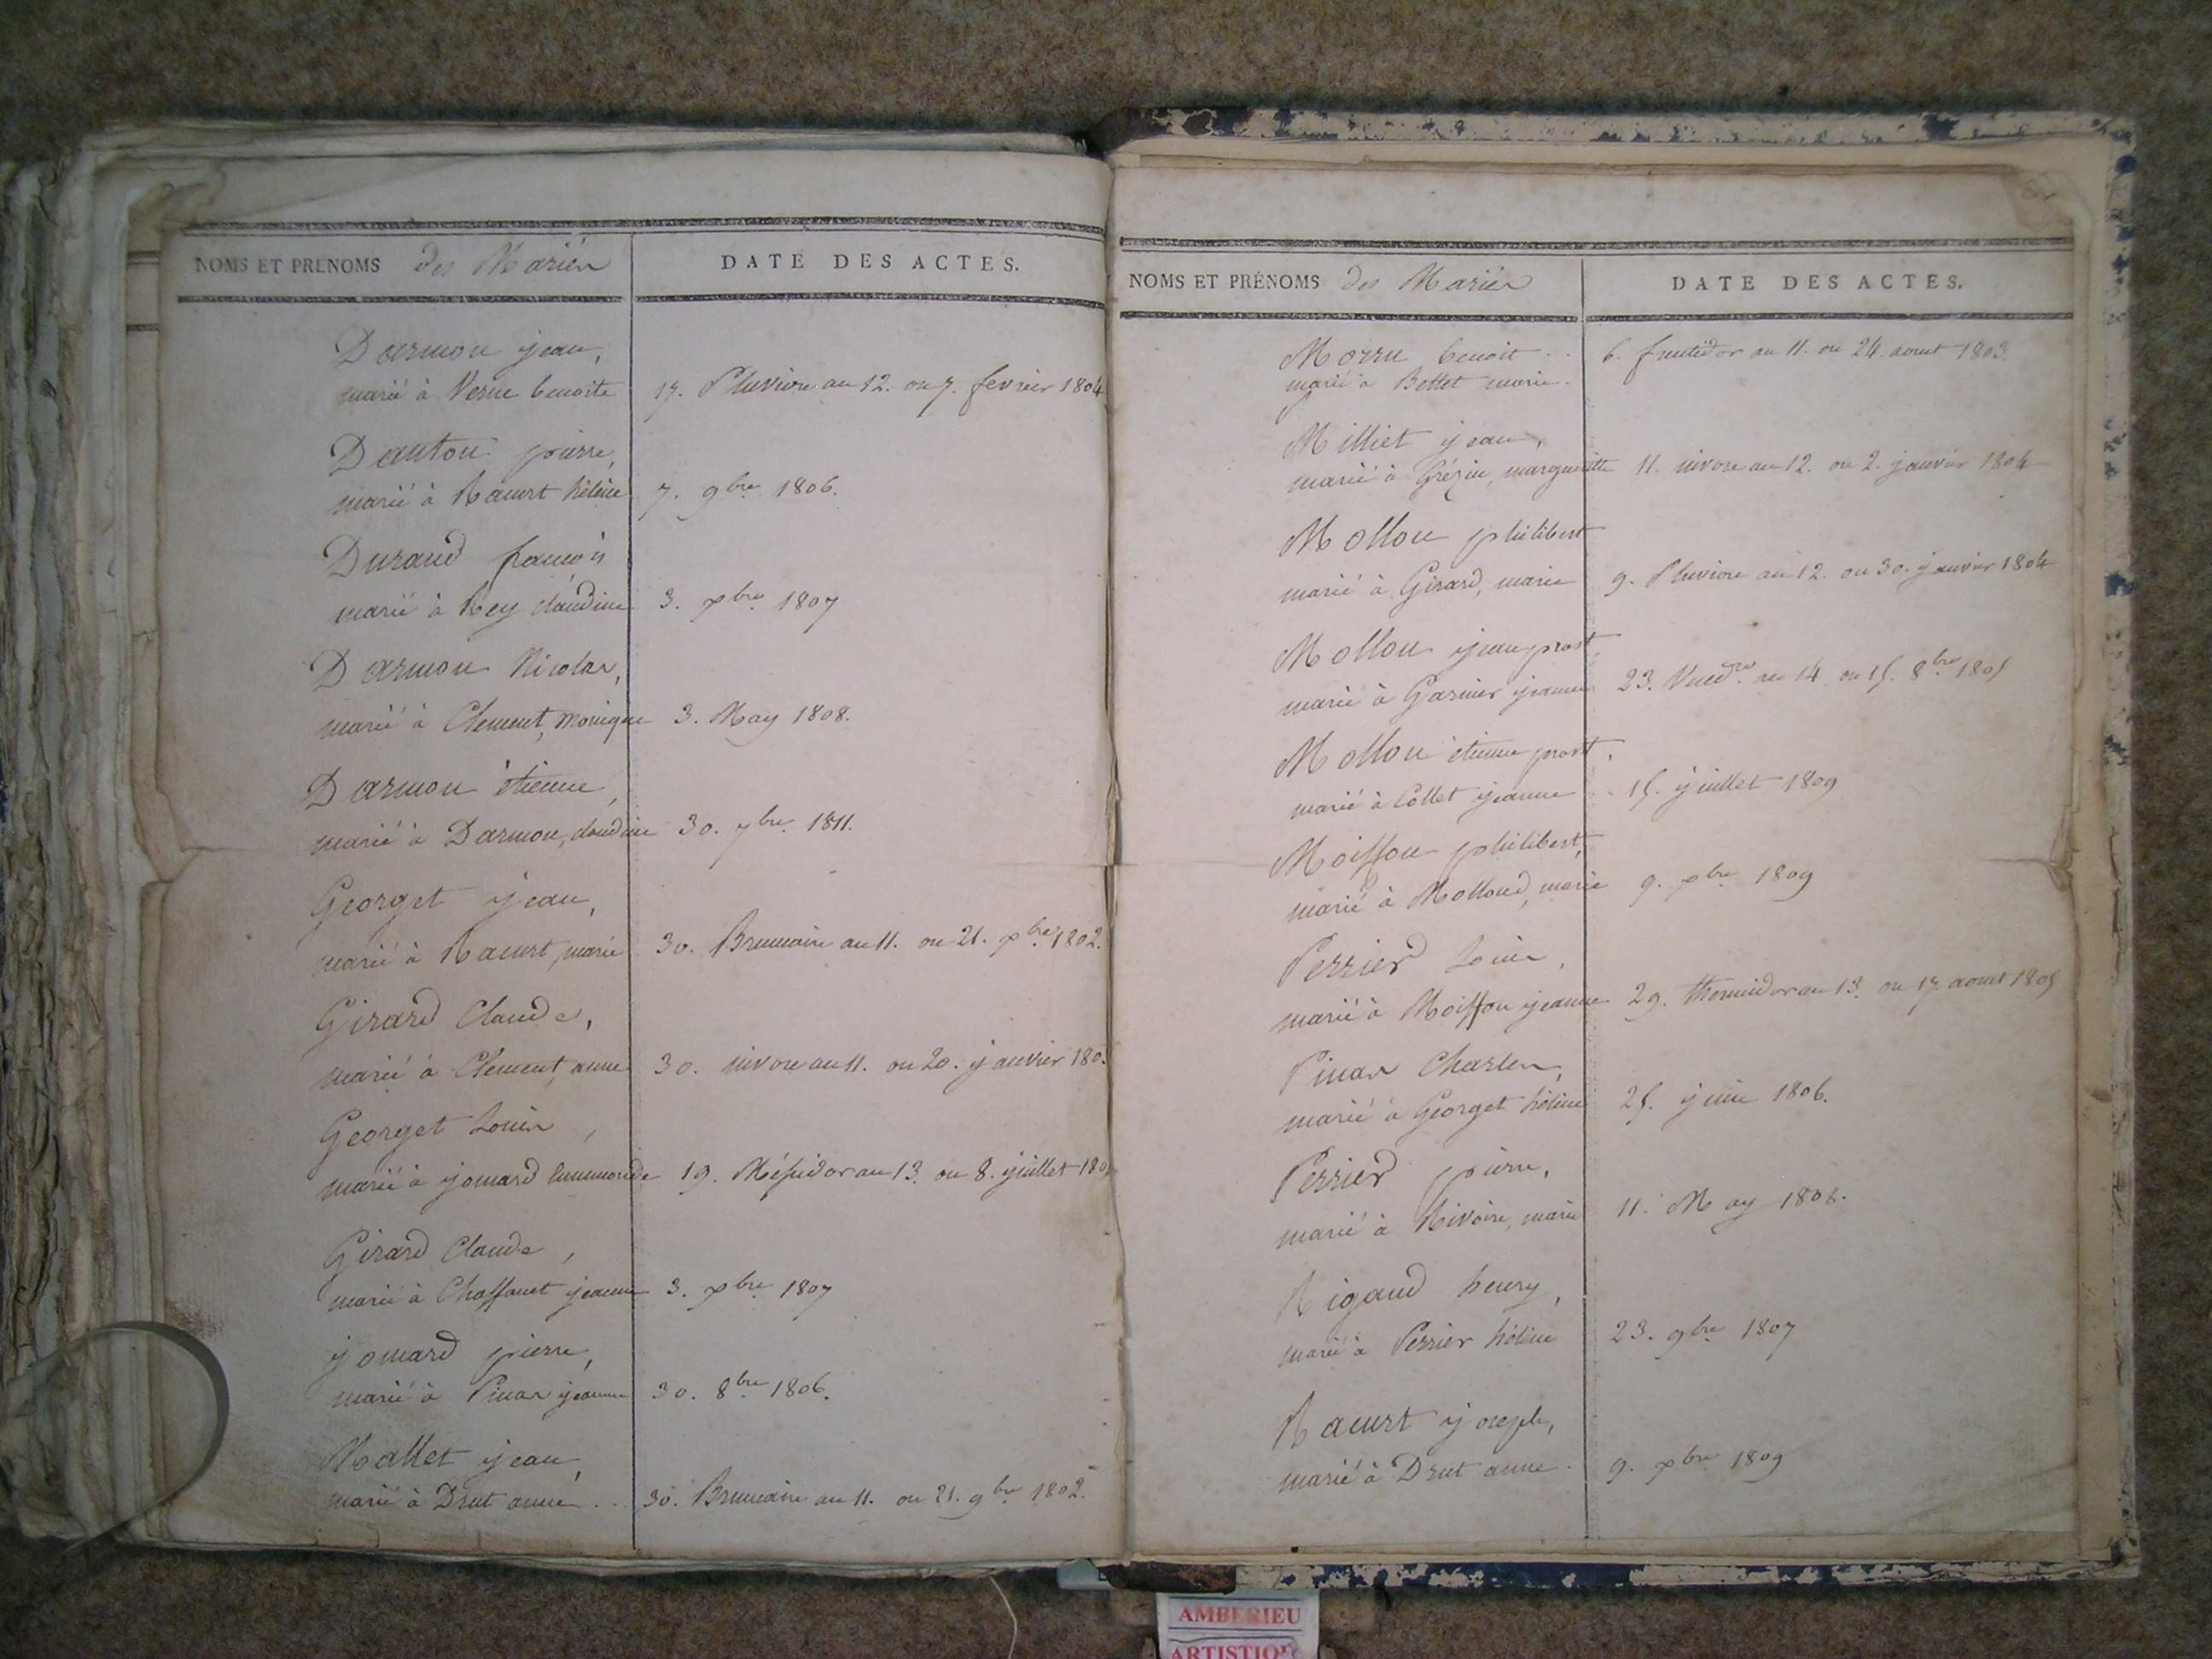 NOMS ET PRENOMS des Mariés
DATE DES ACTES.
Darmon jean,
marié à Verne benoite 17. Pluviose an 12. ou 7. fevrier 1804
Danton pierre,
marié à Racurt hélène 7. 9bre 1806.
Durand francois
marié à Rey claudine 3. xbre 1807
Darmon Nicolas,
marié à Clement, monique 3. May 1808.
Darmon étienne,
marié à Darmon, claudine 30. 7bre 1811.
Georget jean,
marié à Racurt, marie 30. Brumaire an 11. ou 21. xbre 1802.
Girard Claude,
marié à Clement, anne 30. nivose an 11. ou 20. janvier 180
Georget Louis,
marié à jomard 19. Messidor an 13. ou 8. juillet 180
Girard Claude,
marié à Chaffanet jeanne 3. xbre 1807
jomard pierre,
marié à Pinas jeanne 30. 8bre 1806.
Mallet jean,
marié à Drut anne ... 30. Brumaire an 11. ou 21. 9bre 1802.
NOMS ET PRÉNOMS des Mariés
DATE DES ACTES.
benoit .. 6. fructidor an 11. ou 24. aout 1803.
marié à Bettet marie.
Milliet jean,
marié à Grézin, margueritte 11. nivose an 12. ou 2. janvier 1804
Mollon philibert
marié à Girard, marie 9. Pluviose an 12. ou 30. janvier 1804
Mollon jean prost,
marié à Garnier jeanne 23. Vend.re an 14 ou 15. 8bre 1805
Mollon étienne prost,
marié à Collet jeanne . 15. juillet 1809
Moisson philibert,
marié à Mollond, marie 9. xbre 1809
Perrier Louis,
marié à Moisson jeanne 29. thermidor an 13. ou 17. aout 1805
Pinas Charles,
marié à Georget hélène 25. juin 1806.
Perrier pierre,
marié à Rivoire, marie 11. May 1808.
Rigaud henry,
marié à Perrier hélène 23. 9bre 1807
Racurt joseph,
marié à Drut anne . 9. xbre 1809
AMBERIEU
ARTISTIQ